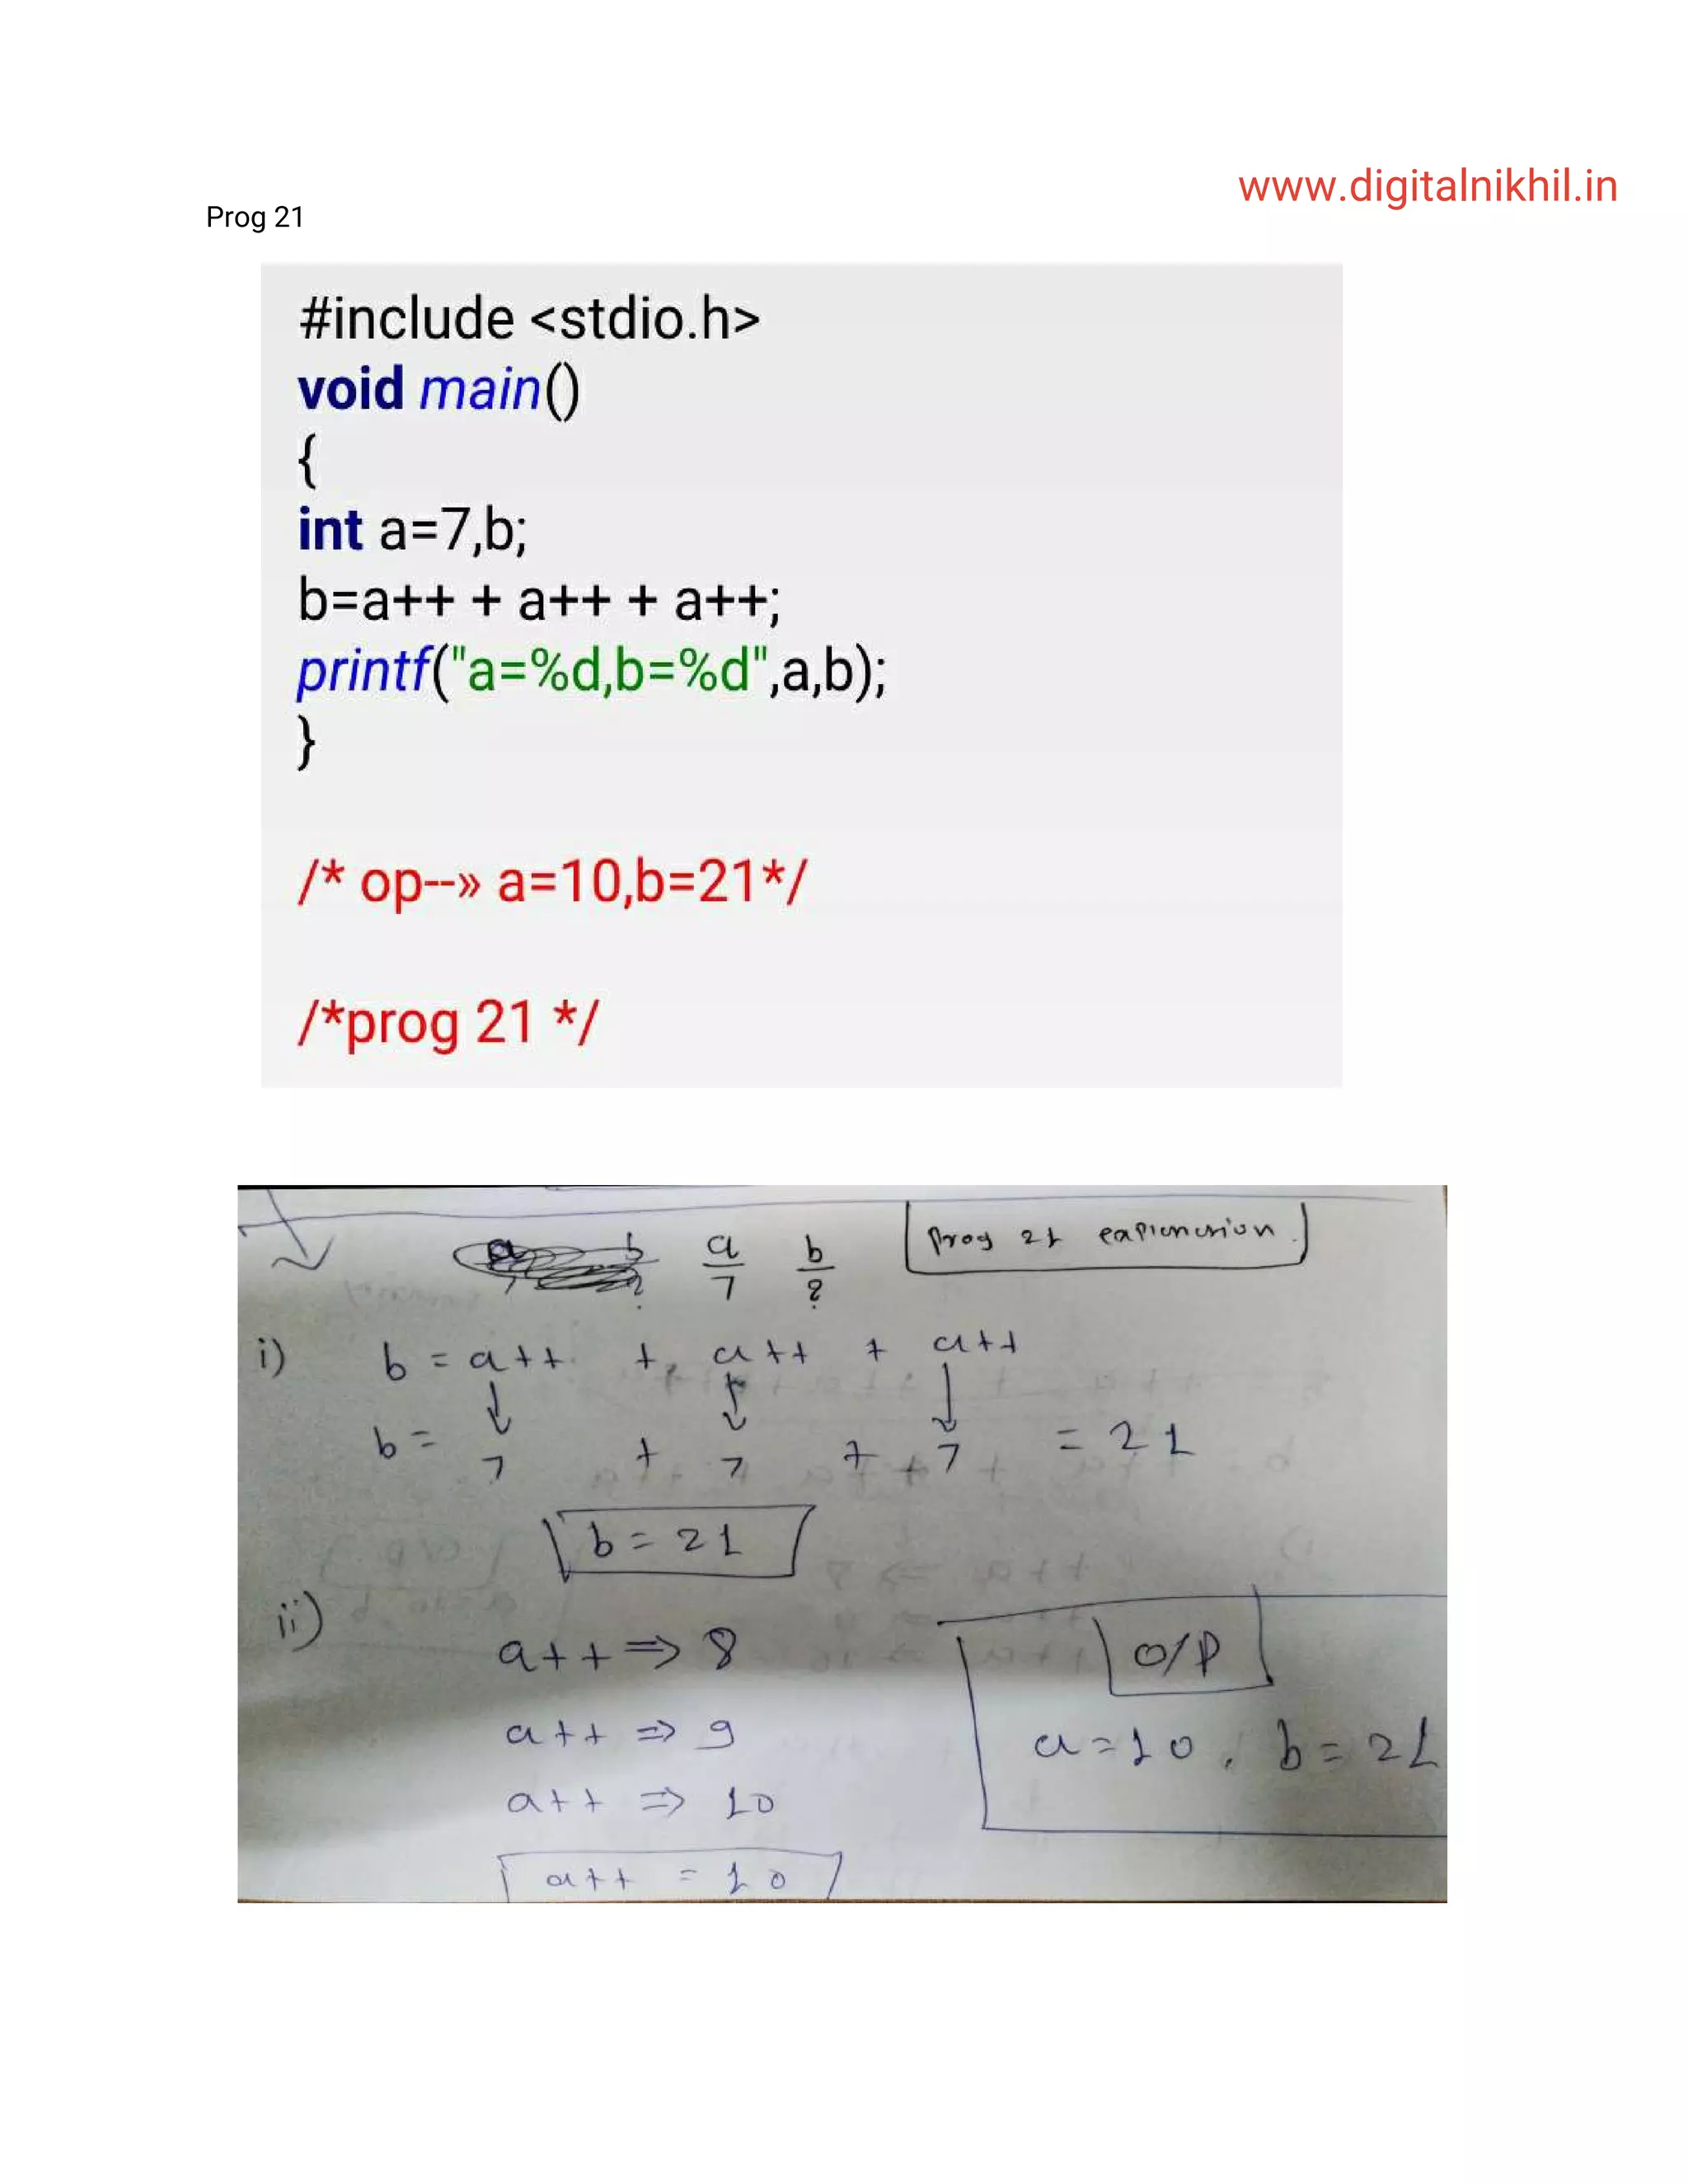 www.digitalnikhil.in
Prog 21
#include <stdio.h>
void main()
{
int a=7,b;
b=a++ + a++ + a++;
printf("a=%d,b=%d",a,b);
}
/* op--» a=10,b=21*/
/*prog 21 */
a b
7 ?
prog 21 explanation
i) b = a++ + a++ + a++
b = 7 + 7 + 7 = 21
b = 21
ii)
a++ => 8
a++ => 9
a++ => 10
a++ = 10
O/P
a=10, b=21